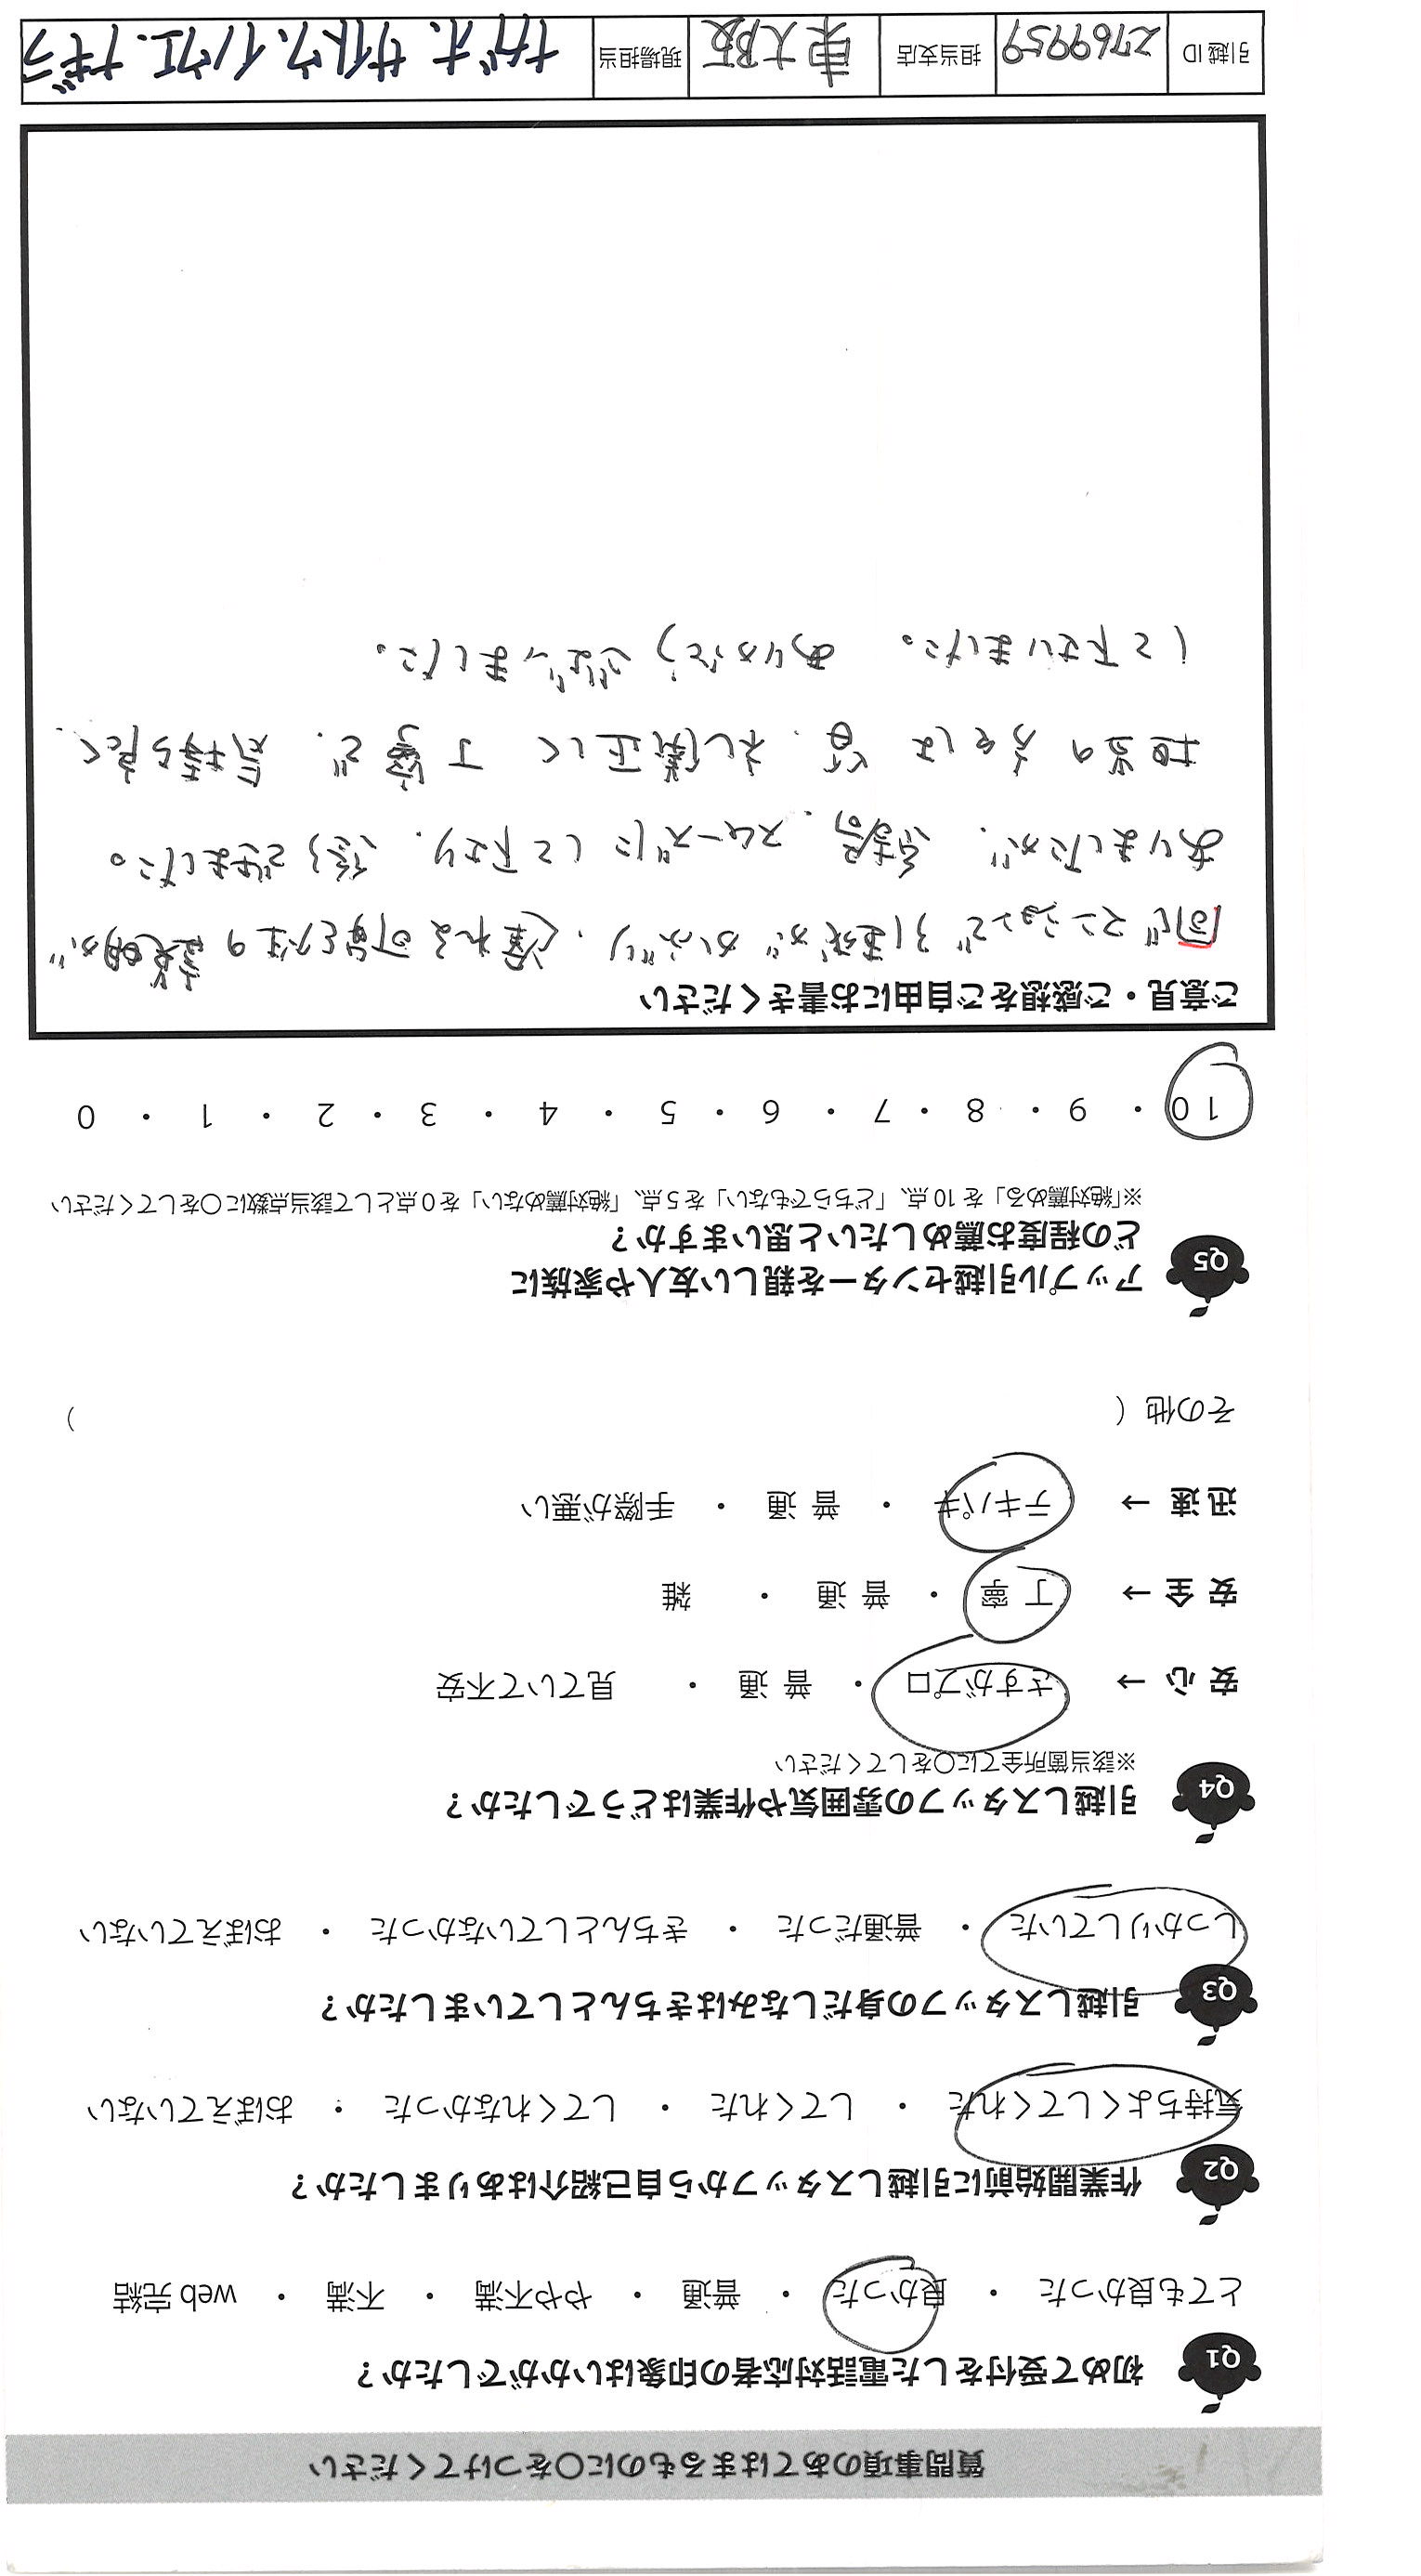 質問事項のあてはまるものに〇をつけてください
Q1 初めて受付をした電話対応者の印象はいかがでしたか？
とても良かった ・ 良かった ・ 普通 ・ やや不満 ・ 不満 ・ web 完結
Q2 作業開始前に引越しスタッフから自己紹介はありましたか？
気持ちよくしてくれた ・ してくれた ・ してくれなかった ・ おぼえていない
Q3 引越しスタッフの身だしなみはきちんとしていましたか？
しっかりしていた ・ 普通だった ・ きちんとしていなかった ・ おぼえていない
Q4 引越しスタッフの雰囲気や作業はどうでしたか？
※該当箇所全てに〇をしてください
安 心 → さすがプロ ・ 普 通 ・ 見ていて不安
安 全 → 丁 寧 ・ 普 通 ・ 雑
迅 速 → テキパキ ・ 普 通 ・ 手際が悪い
その他（ ）
Q5 アップル引越センターを親しい友人や家族に
どの程度お薦めしたいと思いますか？
※「絶対薦める」を 10 点、「どちらでもない」を 5 点、「絶対薦めない」を 0 点として該当点数に〇をしてください
10 ・ 9 ・ 8 ・ 7 ・ 6 ・ 5 ・ 4 ・ 3 ・ 2 ・ 1 ・ 0
ご意見・ご感想をご自由にお書きください
同じマンションで引越がかぶり、遅れる可能性の説明が
ありましたが、結局、スムーズにして下さり、できました。
担当の方々は皆、礼儀正しく丁寧で、気持ち良く、
して下さいました。 ありがとうございました。
引越 ID 2769959 担当支店 東大阪 現場担当 サイトウ、イノウエ、